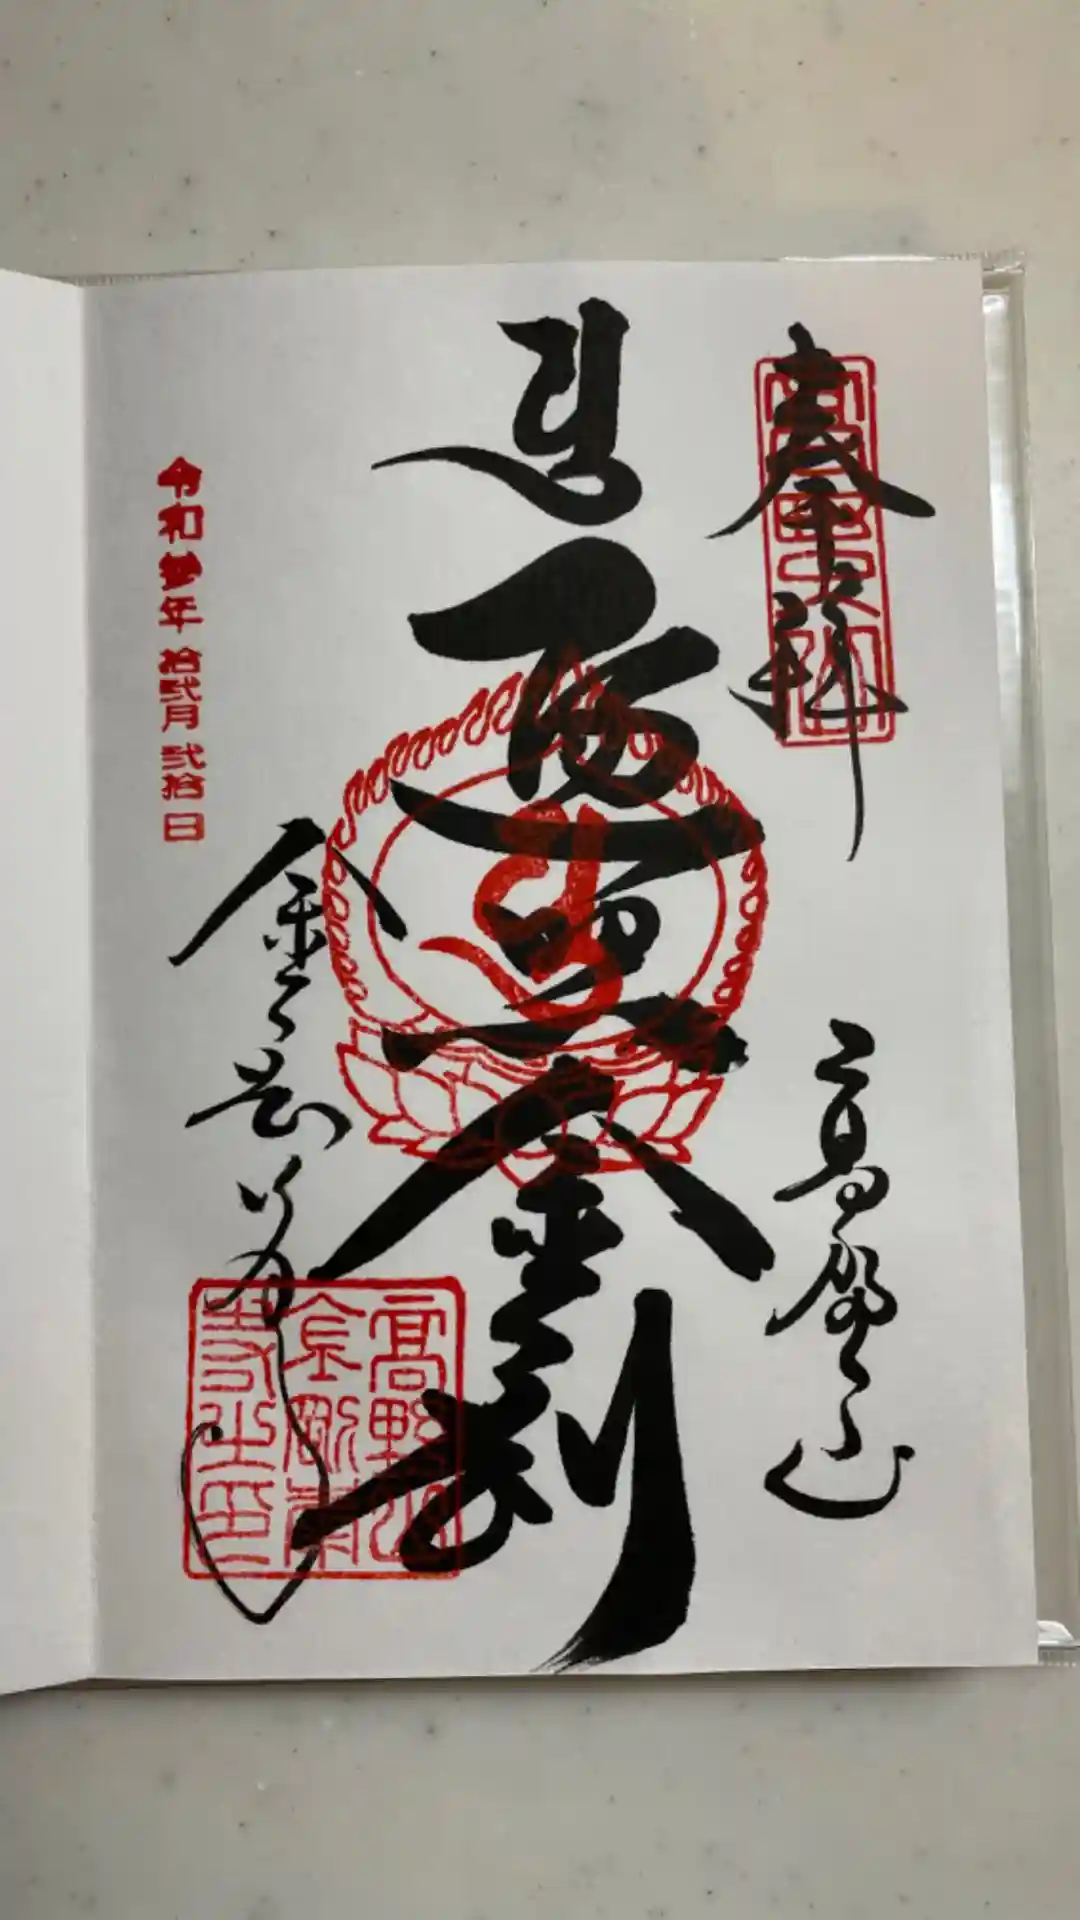 奉拝
高野山
遍照金剛
令和参年 拾弐月 弐拾日
金剛峯寺
高野山
金剛峯
寺之印